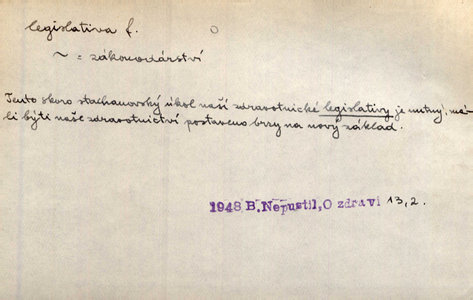 legislativa f.
~ = zákonodárství
Tento skoro stachanovský úkol naší zdravotnické legislativy je nutný, má-
li býti naše zdravotnictví postaveno brzy na nový základ.
1948 B.Nepustil,O zdraví 13,2.